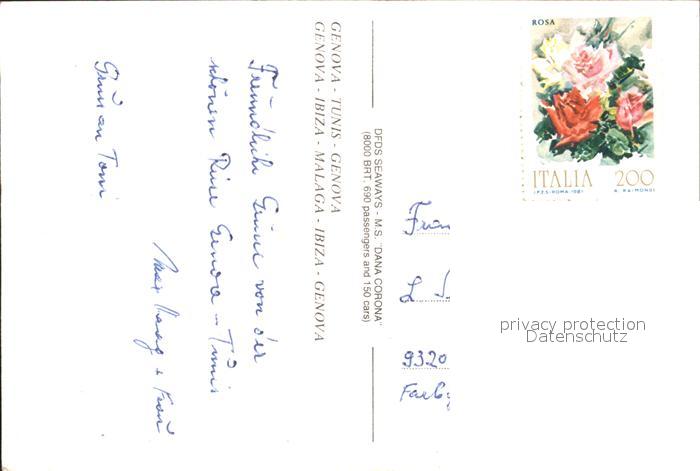 GENOVA - TUNIS - GENOVA
GENOVA - IBIZA - MALAGA - IBIZA - GENOVA
Freundliche Grüsse von der
schönen Reise Genova - Tunis
Max Haag + Frau
Gruss an Toni
DFDS SEAWAYS - M.S. "DANA CORONA"
(8000 BRT, 690 passengers and 150 cars)
ROSA
ITALIA 200
I.P.Z.S.-ROMA-1981 A. RAIMONDI
9320
privacy protection
Datenschutz